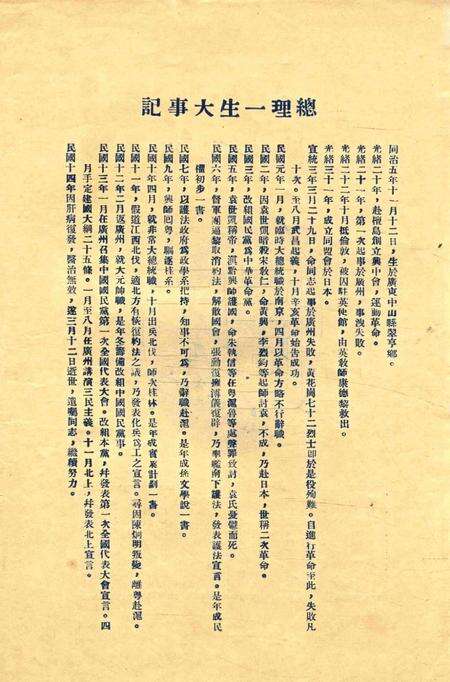 總理一生大事記
同治五年十一月十二日，生於廣東中山縣翠亨鄉。
光緒二十年，赴檀島創立興中會，運動革命。
光緒二十一年，第一次起事於廣州，事洩失敗。
光緒二十二年十月抵倫敦，被囚駐英使館，由英教師康德黎救出。
光緒三十一年，成立同盟會於日本。
宣統三年三月二十九日，命同志起事於廣州失敗，黃花崗七十二烈士即於是役殉難。自進行革命至此，失敗凡
十次。至八月武昌起義，十月辛亥革命始告成功。
民國元年一月，就臨時大總統職於南京，四月以革命方略不行辭職。
民國二年，因袁世凱暗殺宋教仁，命黃興，李烈鈞等起師討袁，不成，乃赴日本，世稱二次革命。
民國三年，改組國民黨為中華革命黨。
民國五年，袁世凱稱帝，滇黔興師護國，命朱執信等在粵滬魯等處聲罪致討，袁氏憂鬱而死。
民國六年，督軍團逼黎取消約法，解散國會，張勳復擁溥儀復辟，乃率艦南下護法，發表護法宣言。是年成民
權初步一書。
民國七年，以護法政府為政學系把持，知事不可為，乃辭職赴滬。是年成孫文學說一書。
民國九年，興師回粵，驅逐桂系。
民國十年四月，就非常大總統職，十月出兵北伐，師次桂林。是年成實業計劃一書。
民國十一年，假道江西北伐，適北方有恢復約法之議，乃發表化兵為工之宣言。尋因陳炯明叛變，離粵赴滬。
民國十二年二月返廣州，就大元帥職，是年冬籌備改組中國國民黨事。
民國十三年一月在廣州召集中國國民黨第一次全國代表大會。改組本黨，幷發表第一次全國代表大會宣言。四
月手定建國大綱二十五條。一月至八月在廣州講演三民主義。十一月北上，幷發表北上宣言。
民國十四年因肝病復發，醫治無效，遂三月十二日逝世，遺囑同志，繼續努力。